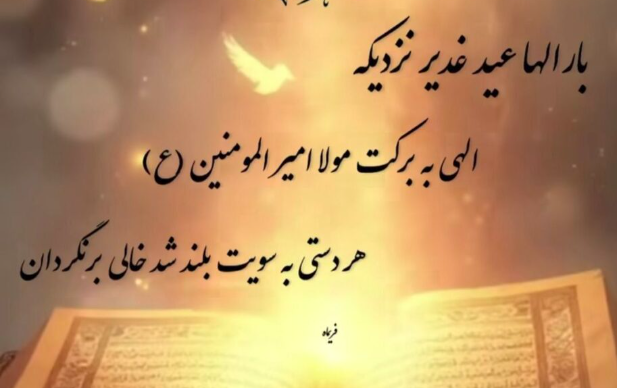 بار الها عید غدیر نزدیکه
الهی به برکت مولا امیر المومنین (ع)
هر دستی به سویت بلند شد خالی برنگردان
فریماه